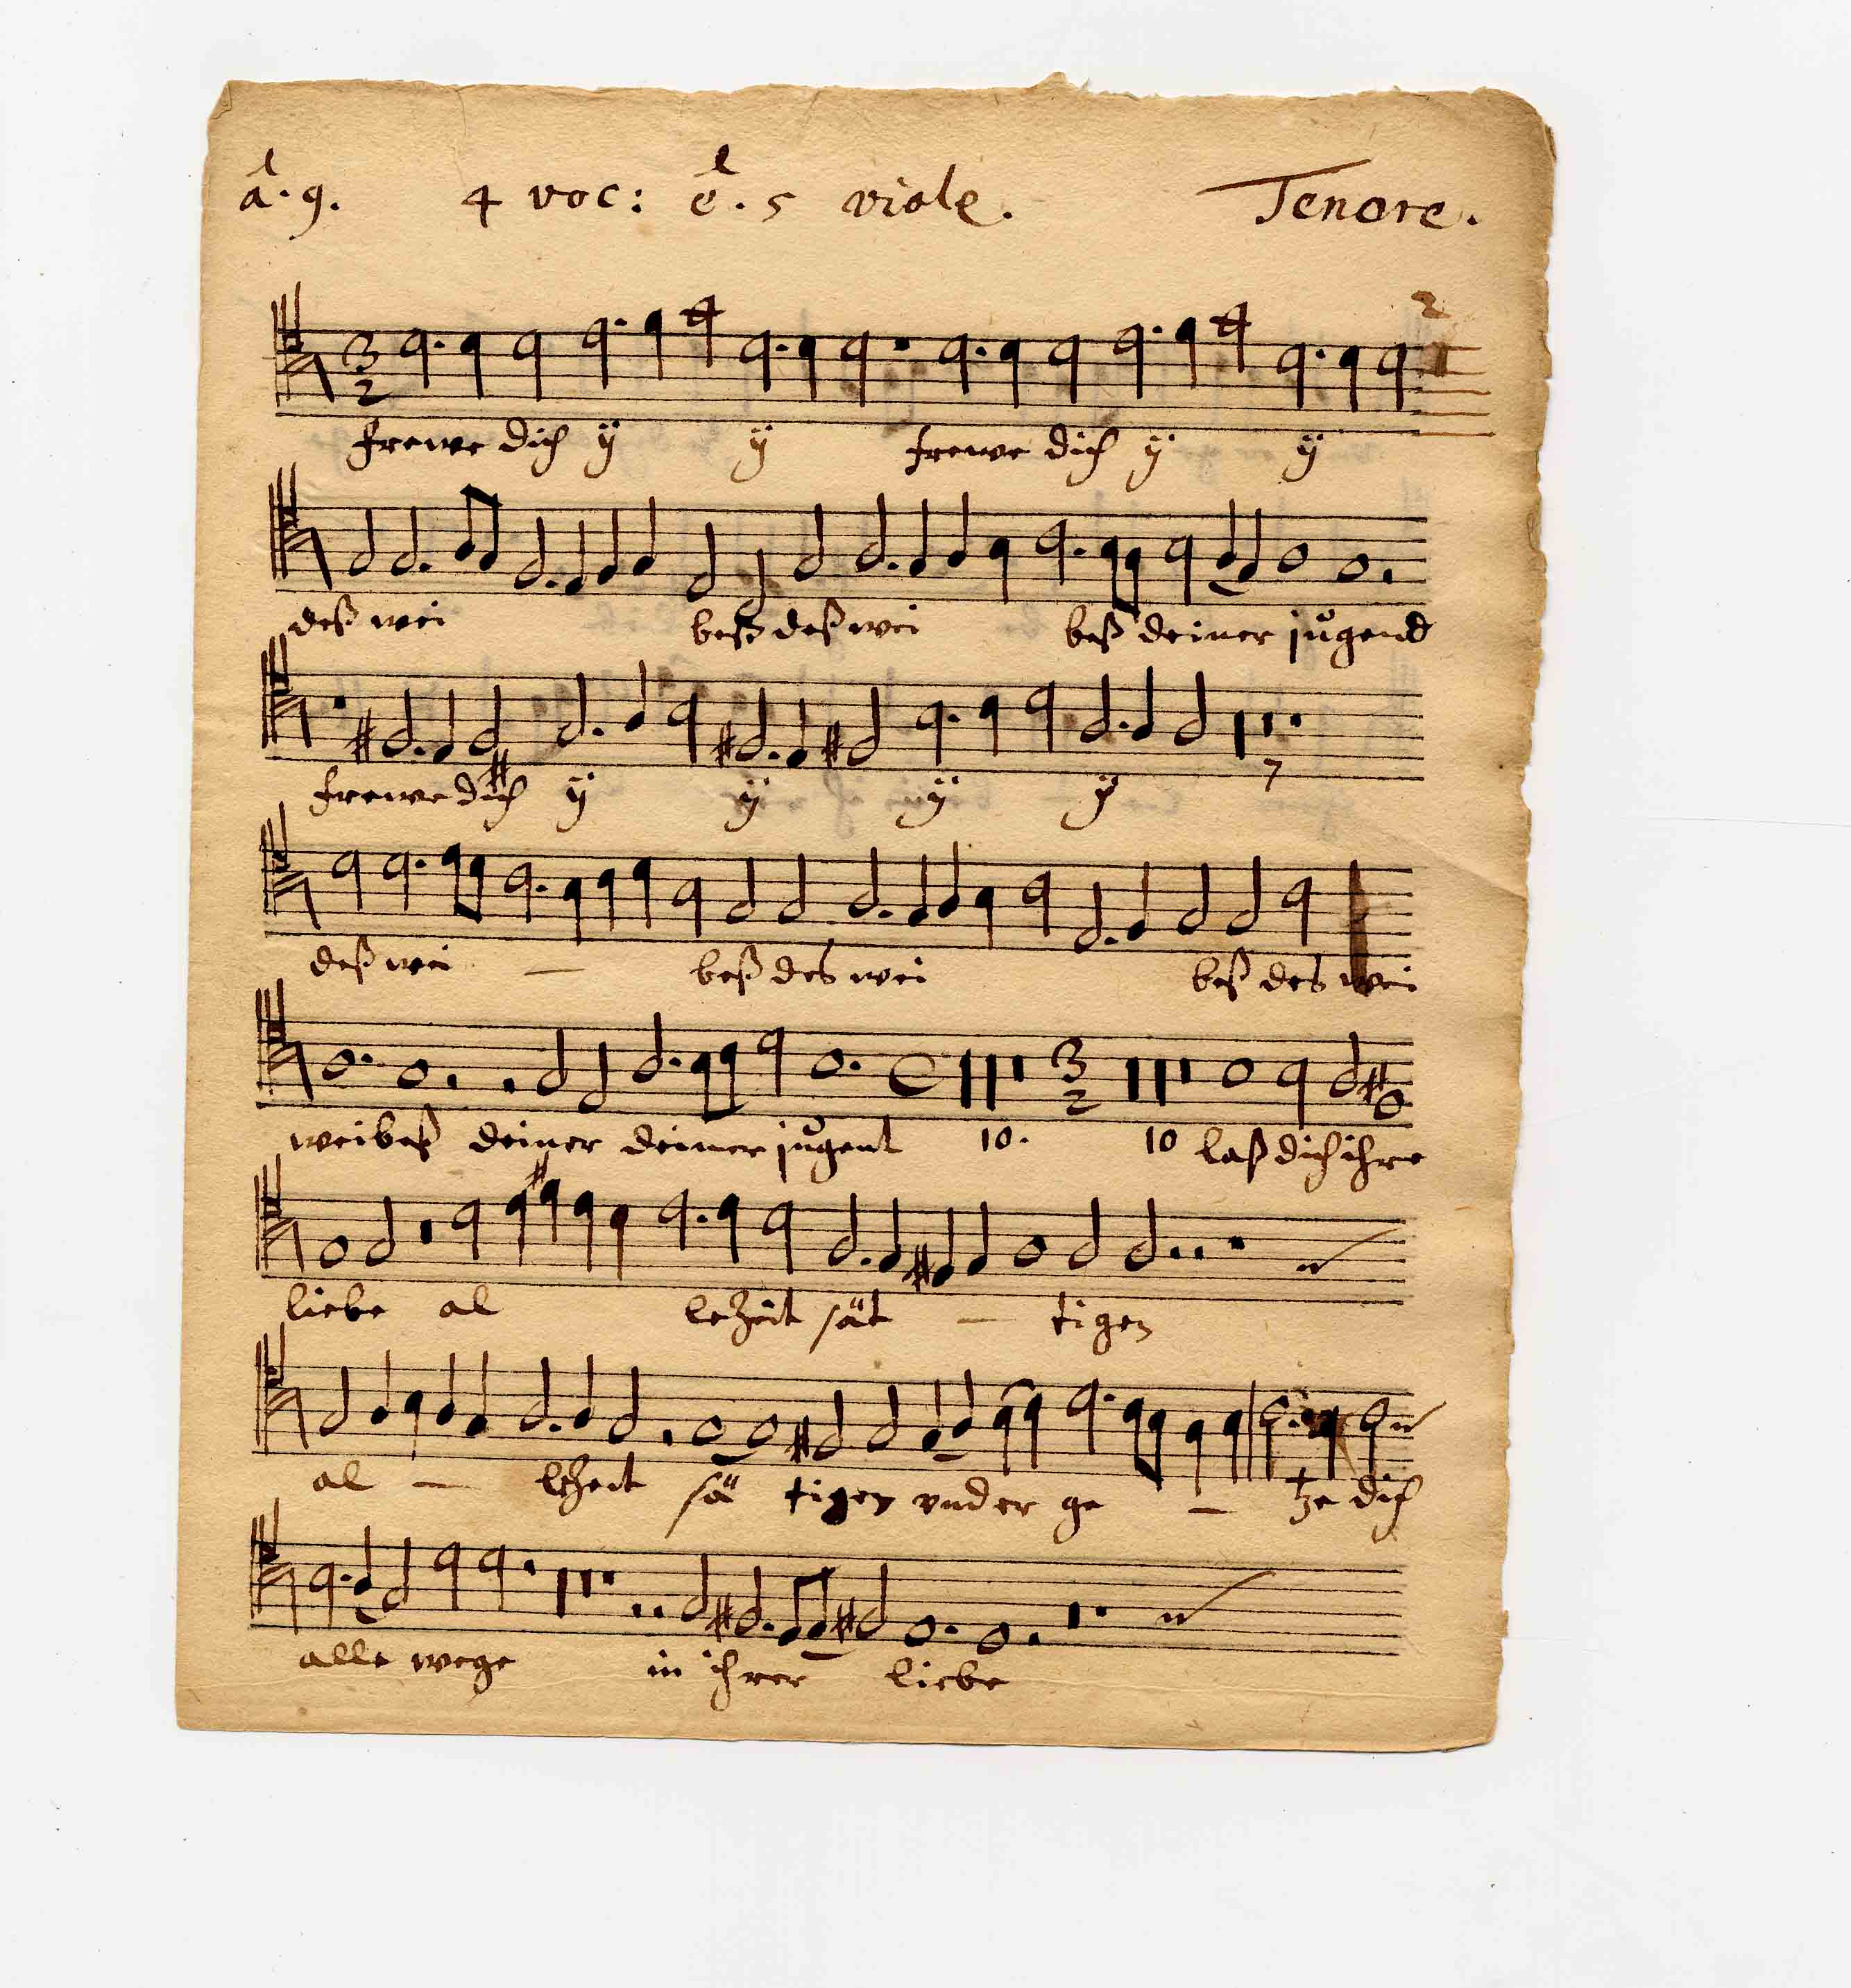 â. 9. 4 voc: ê. 5 viole. Tenore.
3 2 2
frewe dich ÿ ÿ frewe dich ÿ ÿ
deß wei beß deß wei beß deiner jůgend
frewe dich ÿ ÿ ÿ ÿ 7
deß wei — beß des wei beß des wei
3 2
weibeß deiner deiner jůgent 10. 10 laß dich ihre
liebe al lezeit sät — tigen
al — lezeit sä tigen vnd er ge — tze dich
alle wege in ihrer liebe